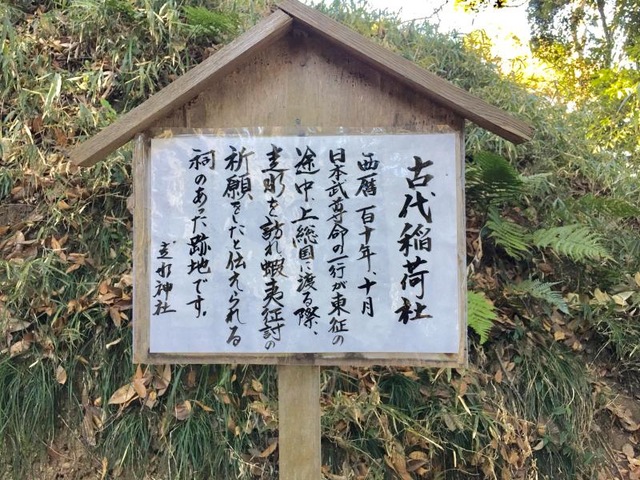 古代稲荷社
西暦百十年、十月
日本武尊命の一行が東征の
途中、上総国に渡る際、
を訪れ蝦夷征討の
祈願をしたと伝えられる
祠のあった跡地です。
神社